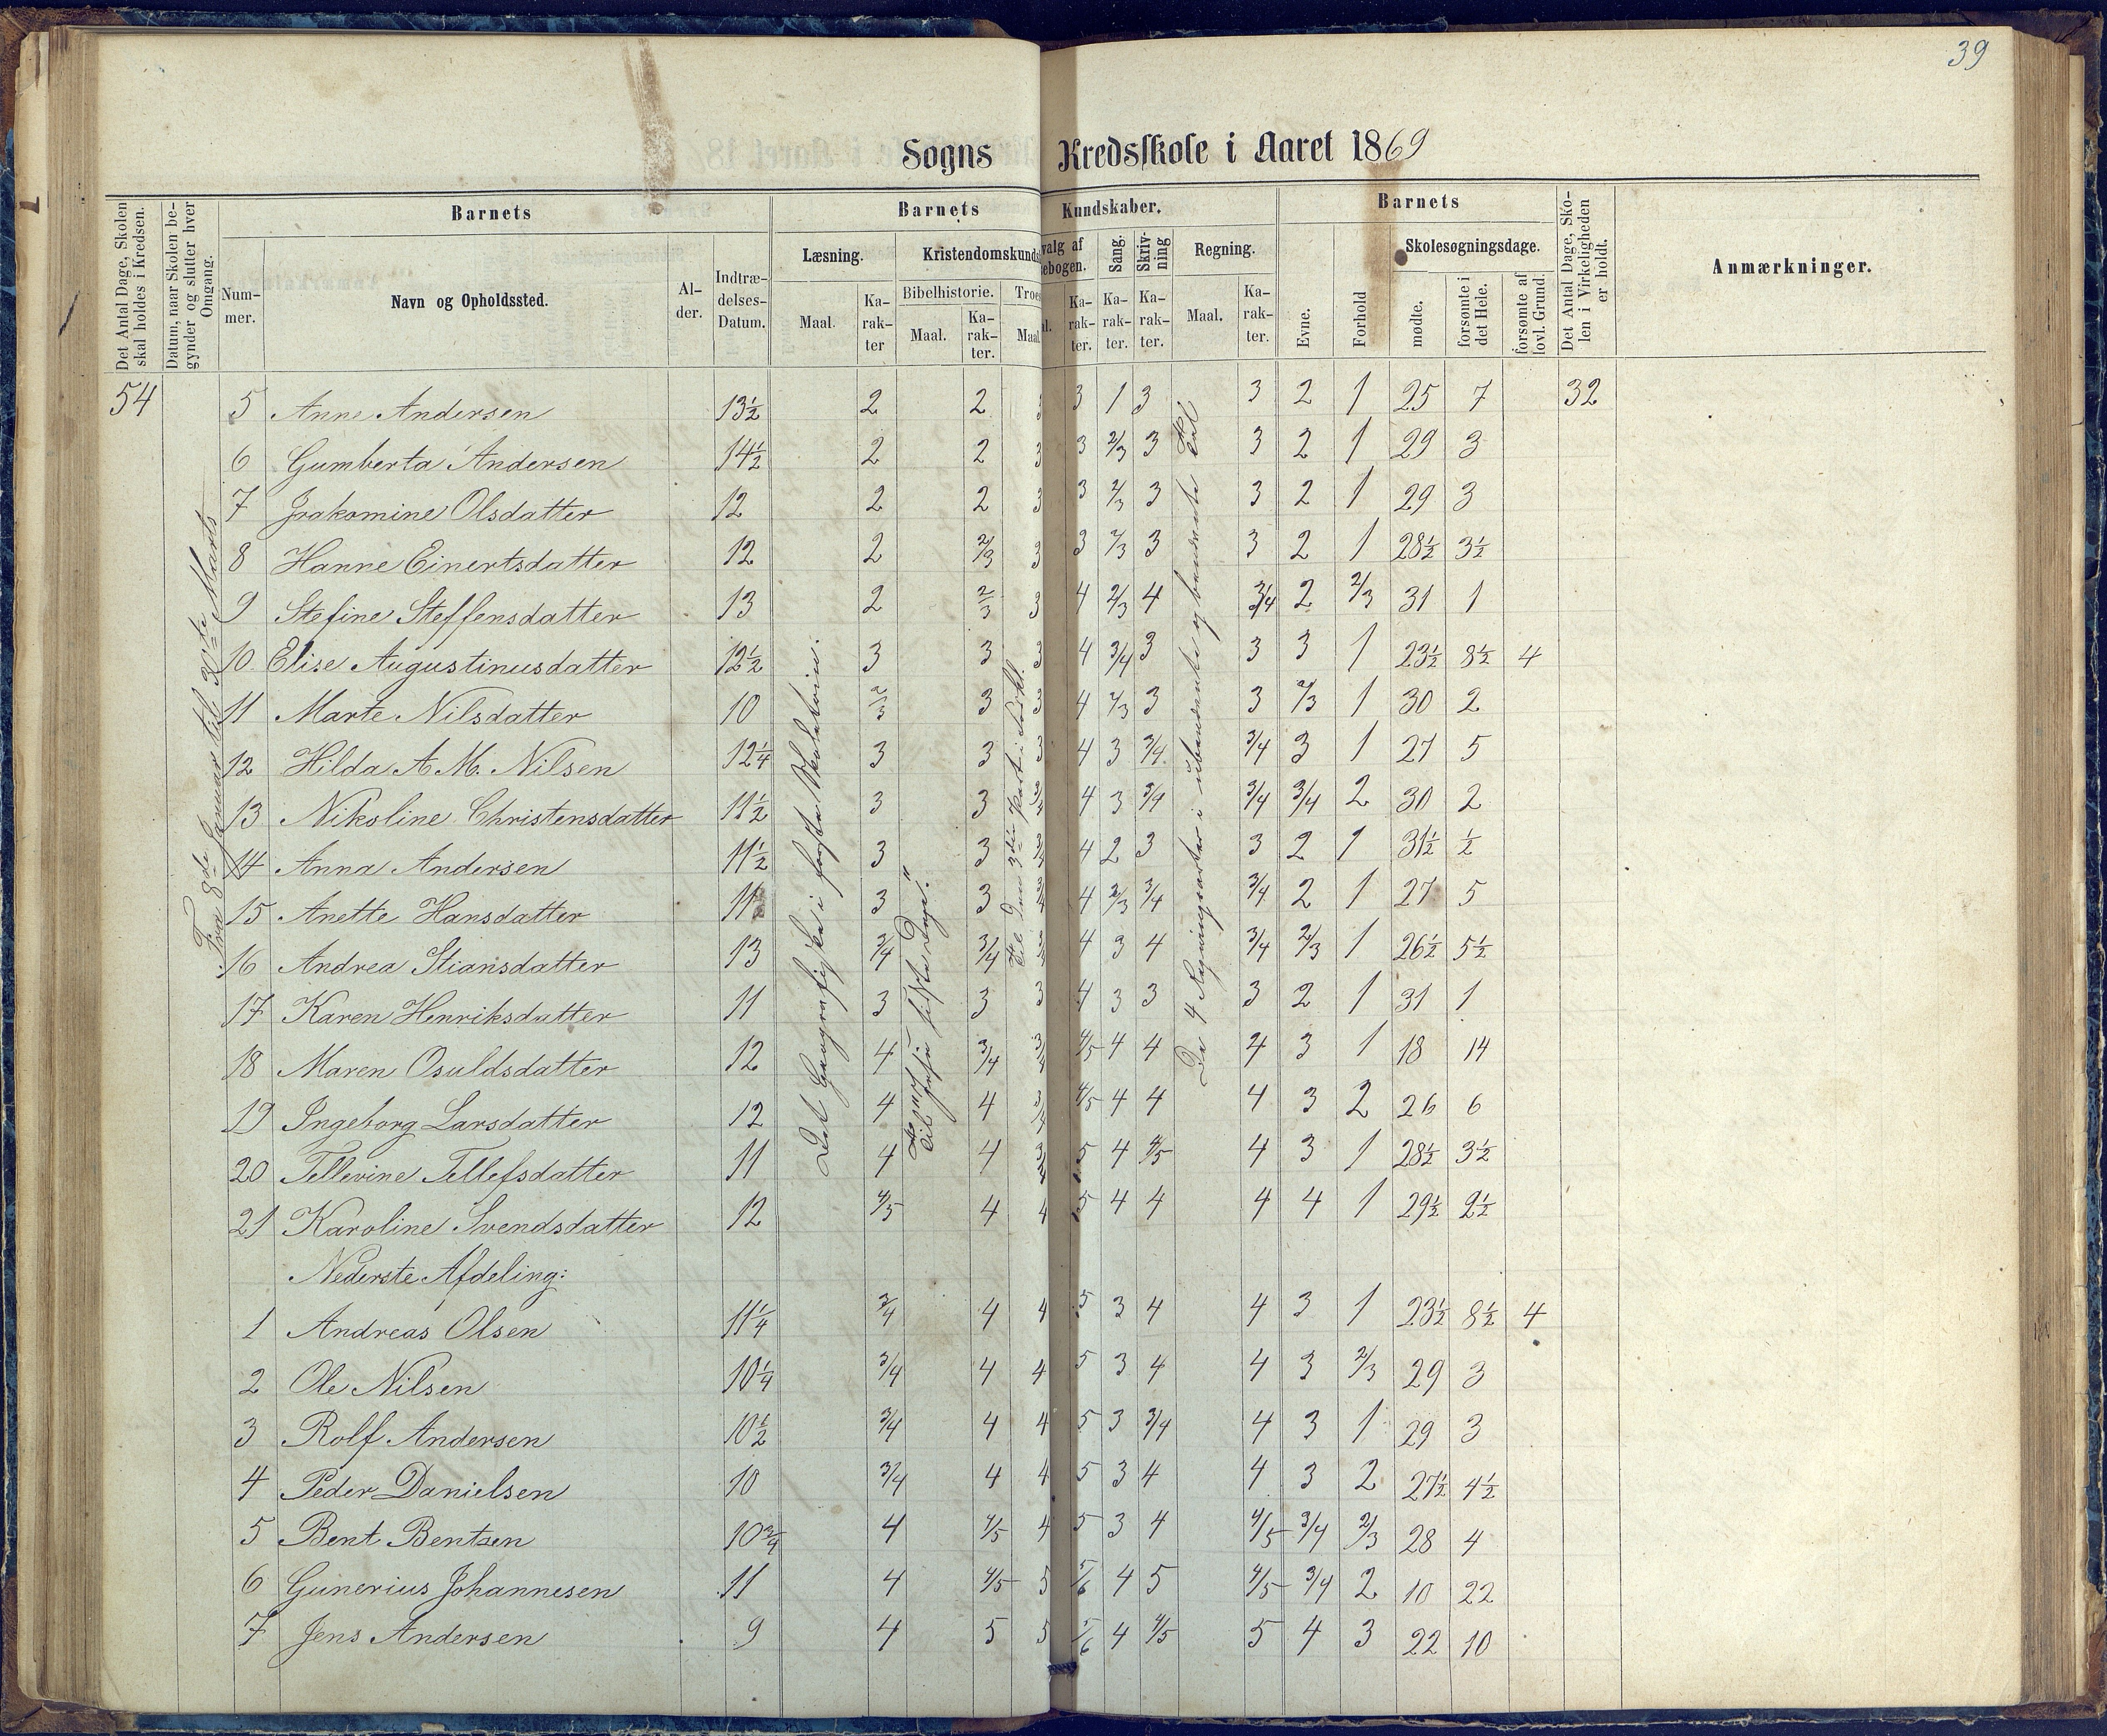 39
Sogns Kredsskole i Aaret 1869
Det Antal Dage, Skolen skal holdes i Kredsen.
Datum, naar Skolen begynder og slutter hver Omgang.
Barnets
Nummer.
Navn og Opholdssted.
Alder.
Indtrædelses-Datum.
Barnets Kundskaber.
Læsning.
Maal.
Karakter
Kristendomskunds
Bibelhistorie.
Maal.
Karakter.
Troes
Maal
valg af
ebogen.
Karakter.
Sang.
Karakter.
Skrivning
Karakter.
Regning.
Maal.
Karakter.
Barnets
Evne.
Forhold
Skolesøgningsdage.
mødte.
forsømte i det Hele.
forsømte af lovl. Grund.
Det Antal Dage, Skolen i Virkeligheden er holdt.
Anmærkninger.
54
Fra 8de Januar til 30te Marts
5 Anne Andersen 13½ 2 2 3 3 1 3 3 2 1 25 7 32
6 Gumberta Andersen 14½ 2 2 3 3 2/3 3 3 2 1 29 3
7 Joakomine Olsdatter 12 2 2 3 3 2/3 3 3 2 1 29 3
8 Hanne Einertsdatter 12 2 2/3 3 3 2/3 3 3 2 1 28½ 3½
9 Stefine Steffensdatter 13 2 2/3 3 4 2/3 4 3/4 2 2/3 31 1
10 Elise Augustinusdatter 12½ 3 3 3 4 3/4 3 3 3 1 23½ 8½ 4
11 Marte Nilsdatter 10 2/3 3 3 4 2/3 3 3 2/3 1 30 2
12 Hilda A. M. Nilsen 12¼ 3 3 3 4 3 3/4 3/4 3 1 27 5
13 Nikoline Christensdatter 11½ 3 3 3/4 4 3 3/4 3/4 3/4 2 30 2
14 Anna Andersen 11½ 3 3 3/4 4 2 3 3 2 1 31½ ½
15 Anette Hansdatter 11 3 3 3/4 4 2/3 3/4 3/4 2 1 27 5
16 Andrea Stiansdatter 13 3/4 3/4 3/4 4 3 4 3/4 2/3 1 26½ 5½
17 Karen Henriksdatter 11 3 3 3 4 3 3 3 2 1 31 1
18 Maren Osuldsdatter 12 4 3/4 3/4 4/5 4 4 4 3 1 18 14
19 Ingeborg Larsdatter 12 4 4 3/4 4/5 4 4 4 3 2 26 6
20 Tellevine Tellefsdatter 11 4 4 3/4 5 4 4/5 4 3 1 28½ 3½
21 Karoline Svendsdatter 12 4/5 4 4 5 4 4 4 4 1 29½ 2½
Det Geografiske i første Skoletrin.
til Jesu sidste Dage."
De 4 Regningsarter i ubenævnte og benævnte Tal
Nederste Afdeling:
1 Andreas Olsen 11¼ 3/4 4 4 5 3 4 4 3 1 23½ 8½ 4
2 Ole Nilsen 10¼ 3/4 4 4 5 3 4 4 3 2/3 29 3
3 Rolf Andersen 10½ 3/4 4 4 5 3 3/4 4 3 1 29 3
4 Peder Danielsen 10 3/4 4 4 5 3 4 4 3 2 27½ 4½
5 Bent Bentsen 10¾ 4 4/5 4 5 3 4 4/5 3/4 2/3 28 4
6 Gunerius Johannesen 11 4 4/5 5 5/6 4 5 4/5 3/4 2 10 22
7 Jens Andersen 9 4 5 5 5/6 4 4/5 5 4 3 22 10